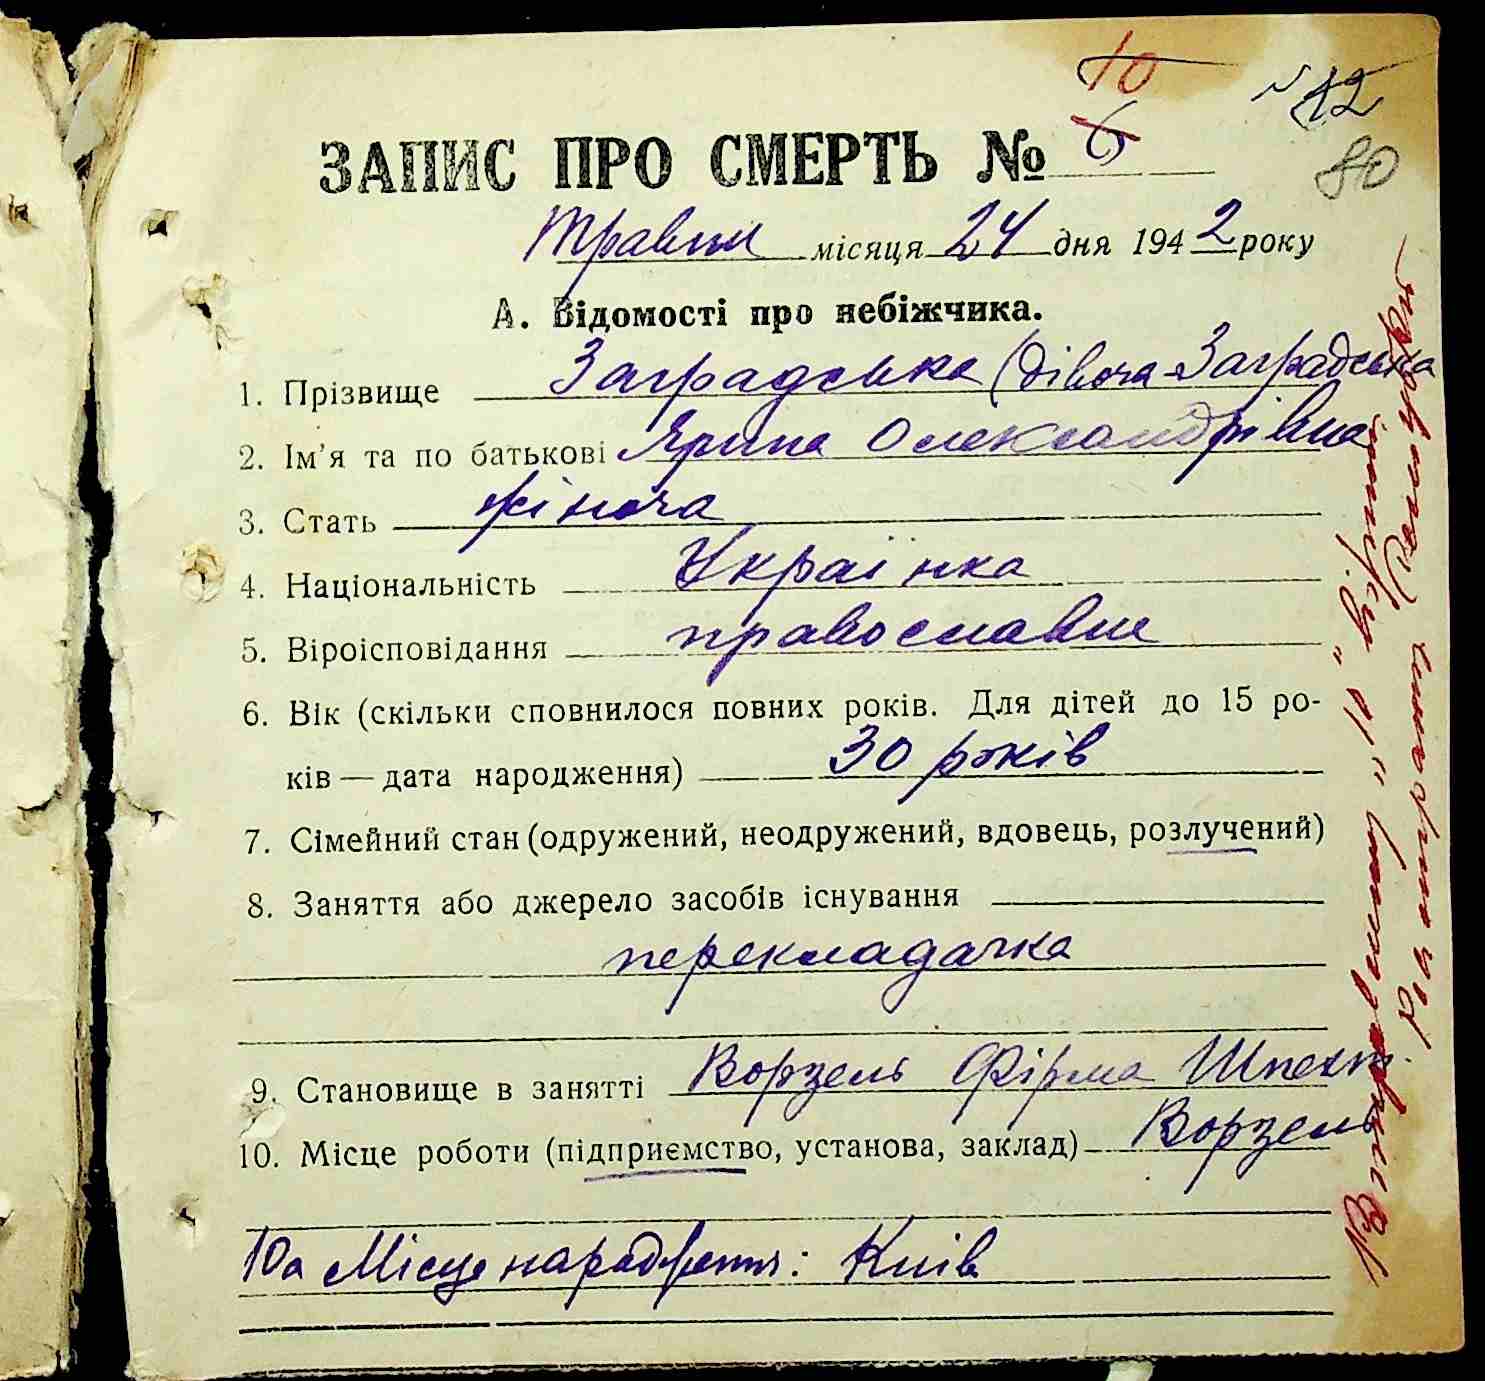 10
№ 12
ЗАПИС ПРО СМЕРТЬ № 6
80
Травня місяця 24 дня 1942 року
А. Відомості про небіжчика.
1. Прізвище Заградська (дівоча Заградська
2. Ім'я та по батькові Ярина Олександрівна
3. Стать жіноча
4. Національність Українка
5. Віроісповідання православна
6. Вік (скільки сповнилося повних років. Для дітей до 15 ро-
ків — дата народження) 30 років
7. Сімейний стан (одружений, неодружений, вдовець, розлучений)
8. Заняття або джерело засобів існування
перекладачка
9. Становище в занятті Ворзель Фірма Шпехт.
10. Місце роботи (підприємство, установа, заклад) Ворзель
10а Місце народження: Київ
Виправленню "10" вірити.